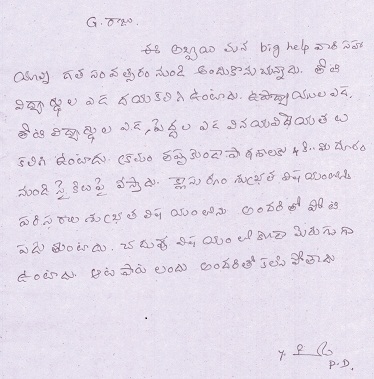 G. రాజు.
ఈ అబ్బాయి మన big help వారి సహా
యాన్ని గత సంవత్సరం నుండి అందుకొనుచున్నాడు. తోటి
విద్యార్థుల ఎడ దయకలిగి ఉంటాడు. ఉపాధ్యాయుల ఎడ,
తోటి విద్యార్థుల ఎడ, పెద్దల ఎడ వినయవిధేయతలు
కలిగి ఉంటాడు. క్రమం తప్పకుండా పాఠశాలకు 4 కి.మి దూరం
నుండి సైకిలుపై వస్తాడు. క్లాసురూం శుభ్రత విషయంలోను
పరిసరాల శుభ్రత విషయంలోను అందరితో పోటి
పడుతుంటాడు. చదువు విషయంలో కూడా మెరుగుగా
ఉంటాడు. ఆటపాటలందు అందరితో కలసి పోతాడు
P.D.